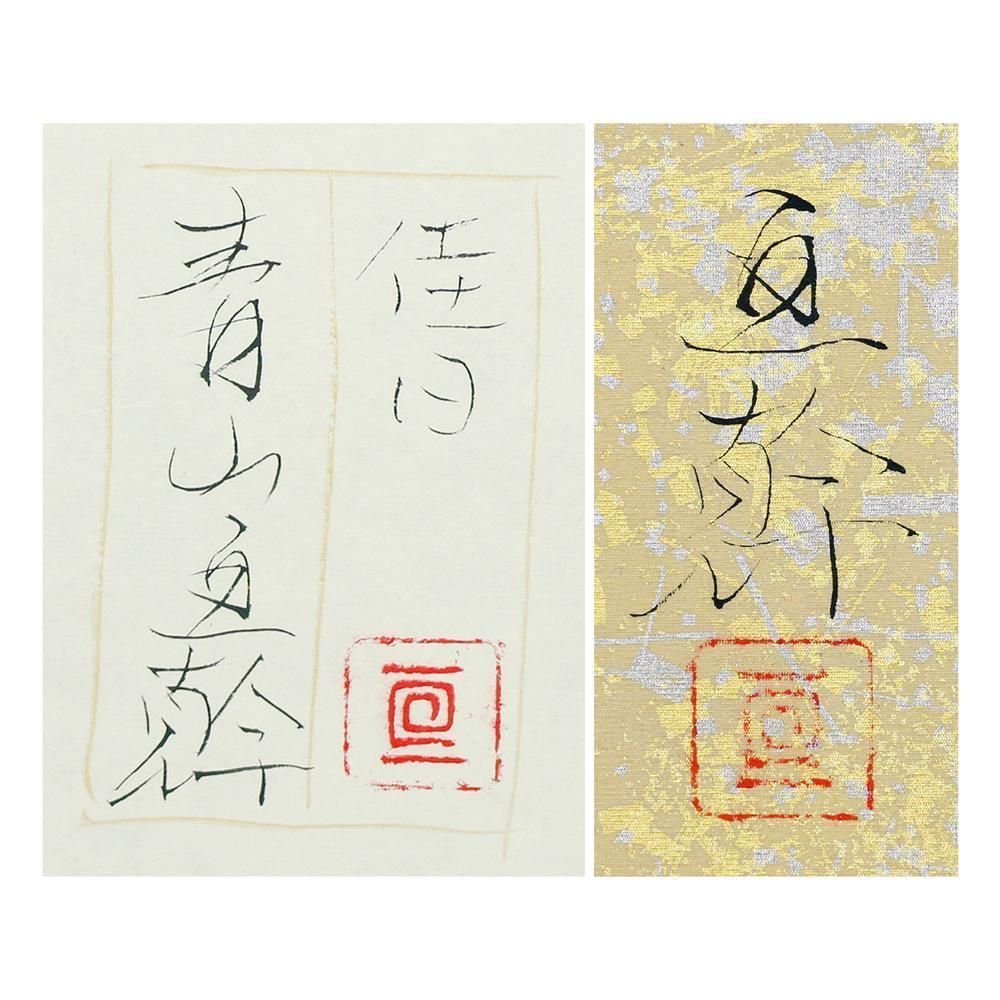 佳日
亘
青山亘幹
亘幹
亘